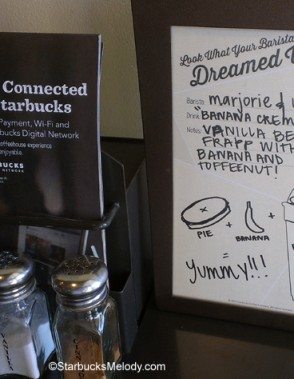 Connected
tarbucks
Payment, Wi-Fi and
bucks Digital Network
coffeehouse experience
enjoyable.
BUCKS
NETWORK
Look What Your Barista
Dreamed
Barista marjorie &
Drink "BANANA CREM
Notes VANILLA BE
FRAPP WITH
BANANA AND
TOFFEENUT!
+ +
PIE BANANA
=
yummy!!!
©StarbucksMelody.com